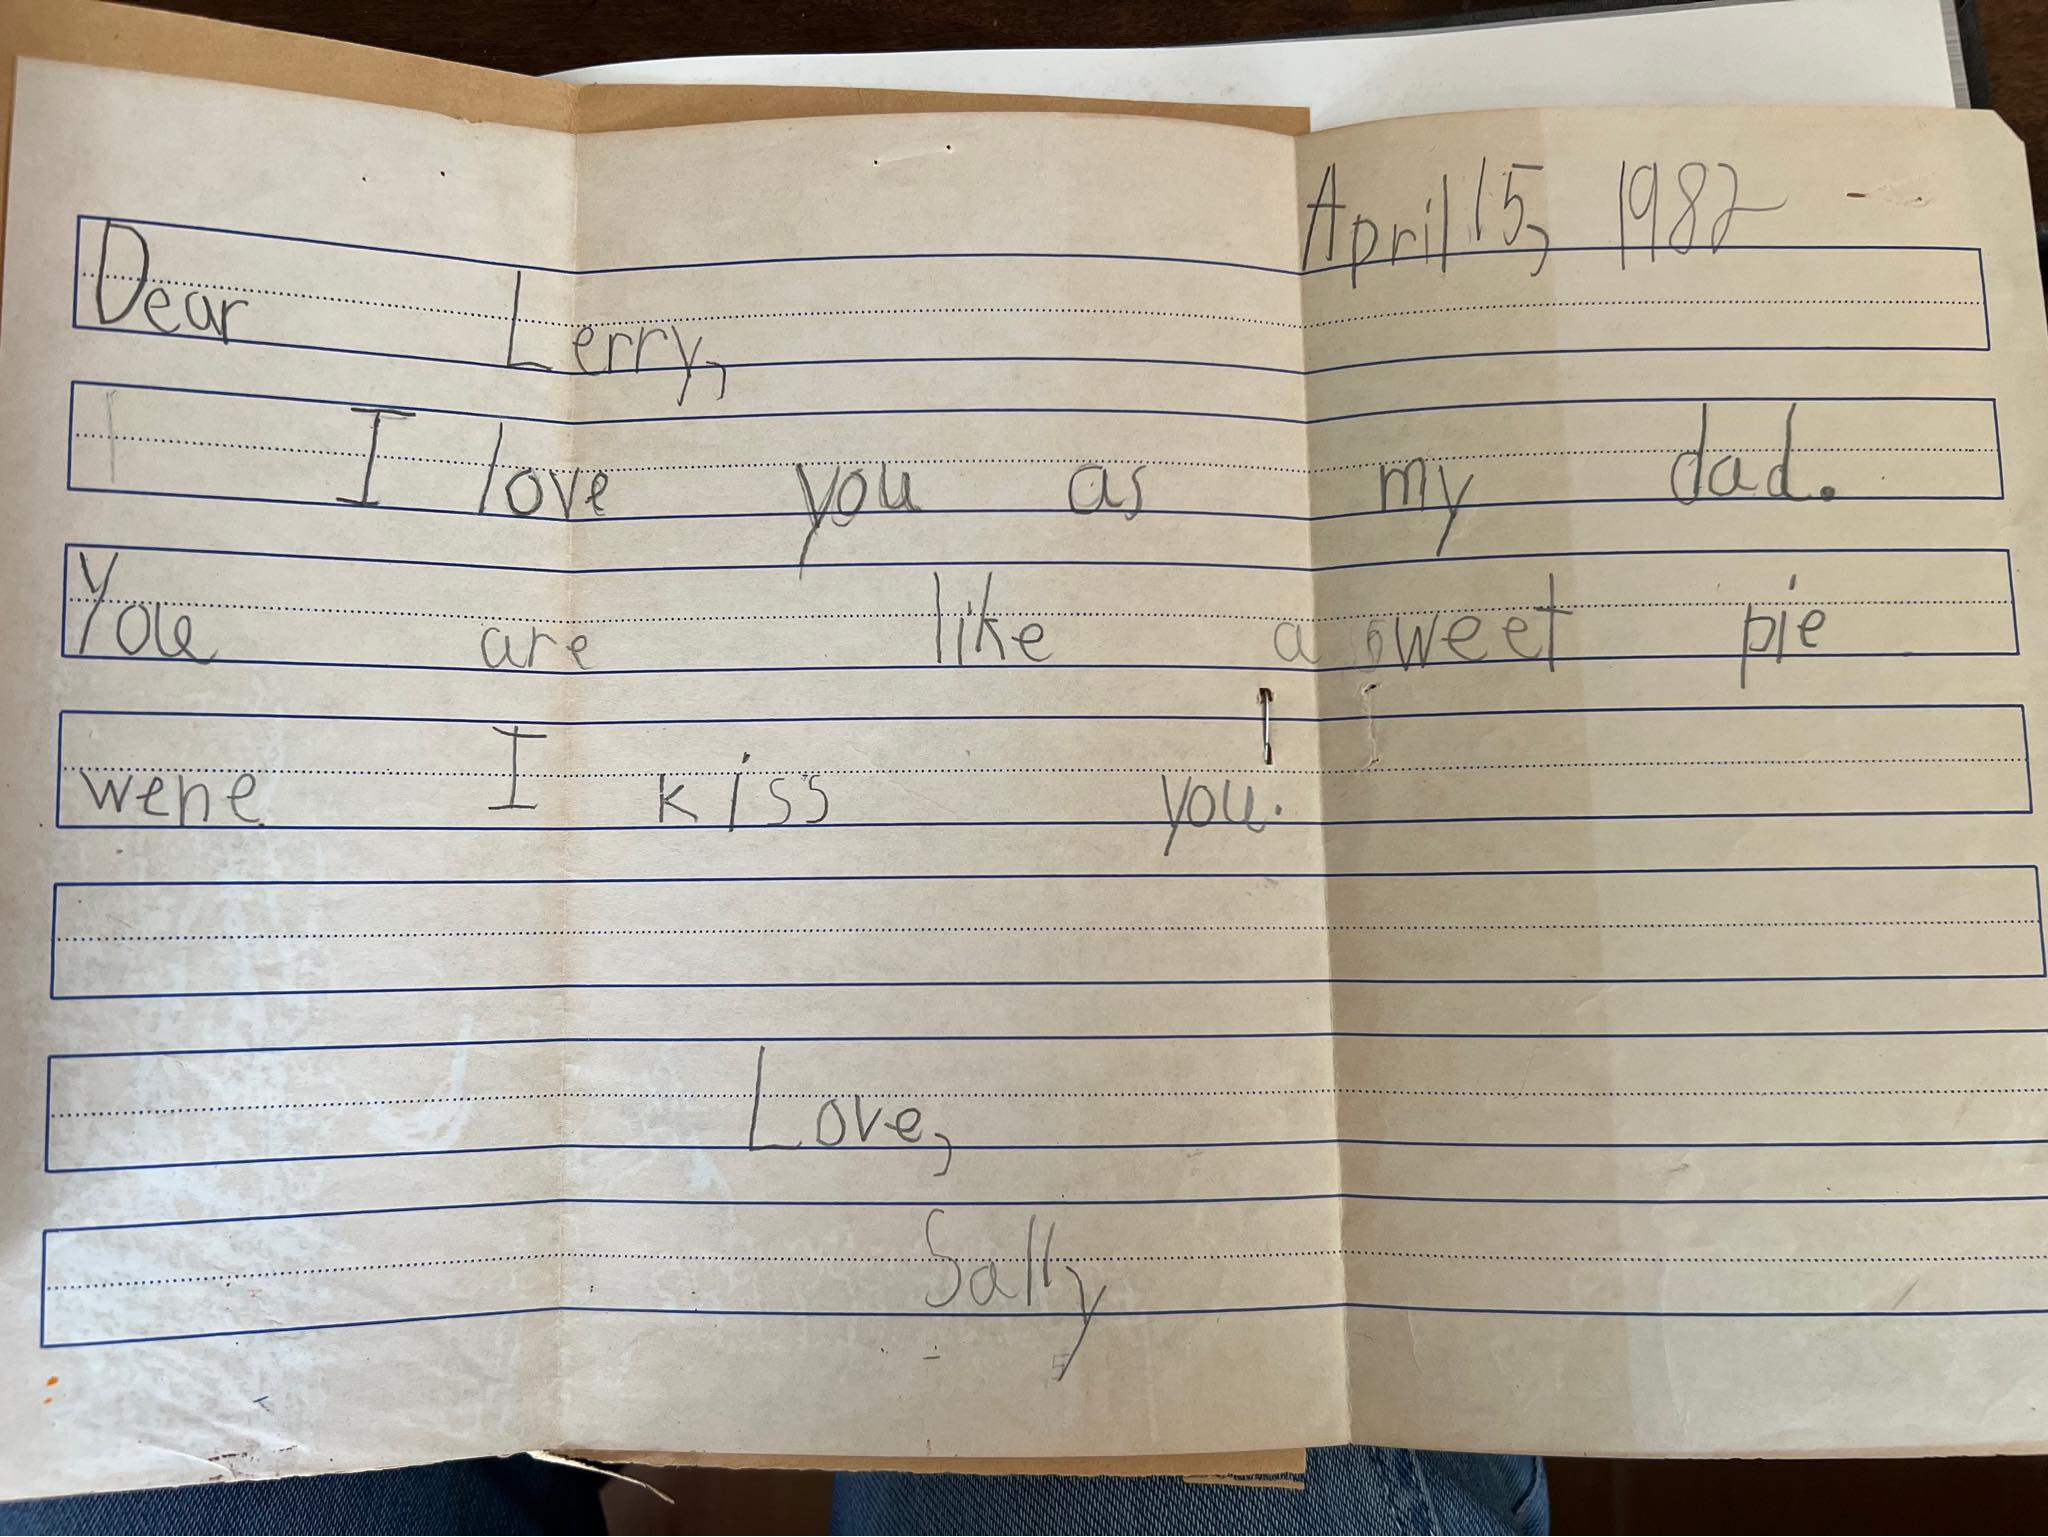 April 15, 1982
Dear Lerry,
I love you as my dad.
You are like a sweet pie
wene I kiss you.
Love,
Sally